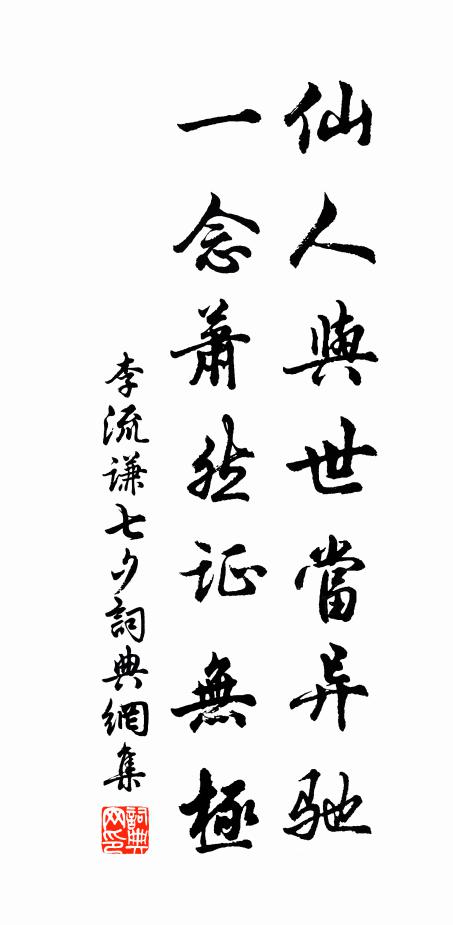 仙人與世當异馳
一念蕭然证無極
李流谦七夕詞典網集
詞典网印